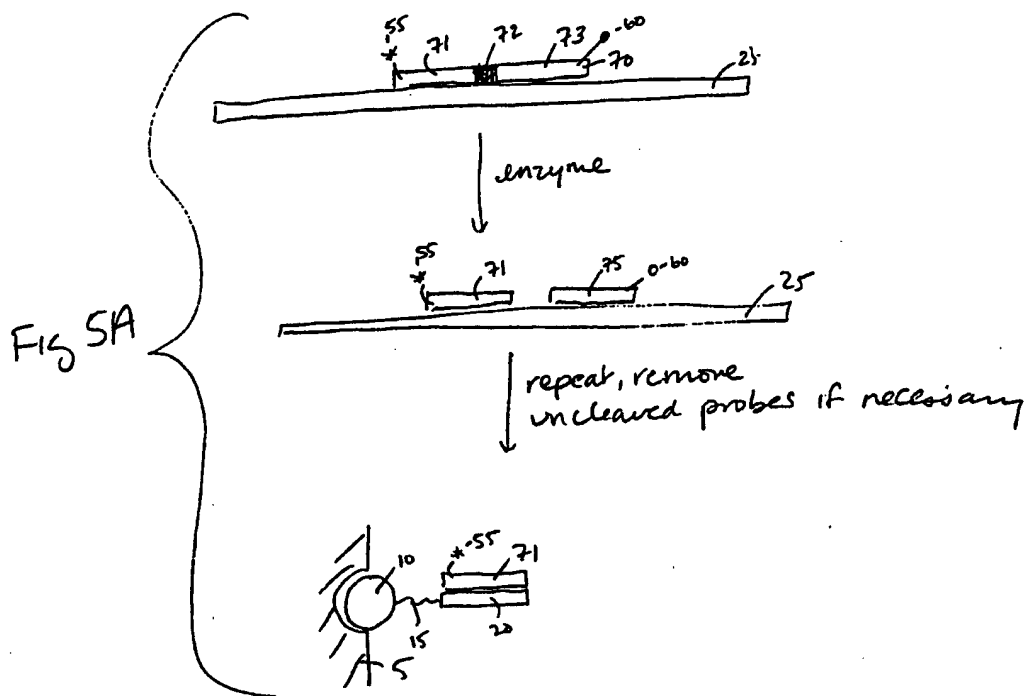 *55 71 72 73 -60
70
25
enzyme
*55 71 75 0-60
25
Fig 5A
repeat, remove
uncleaved probes if necessary
10
*-55
71
15
20
5